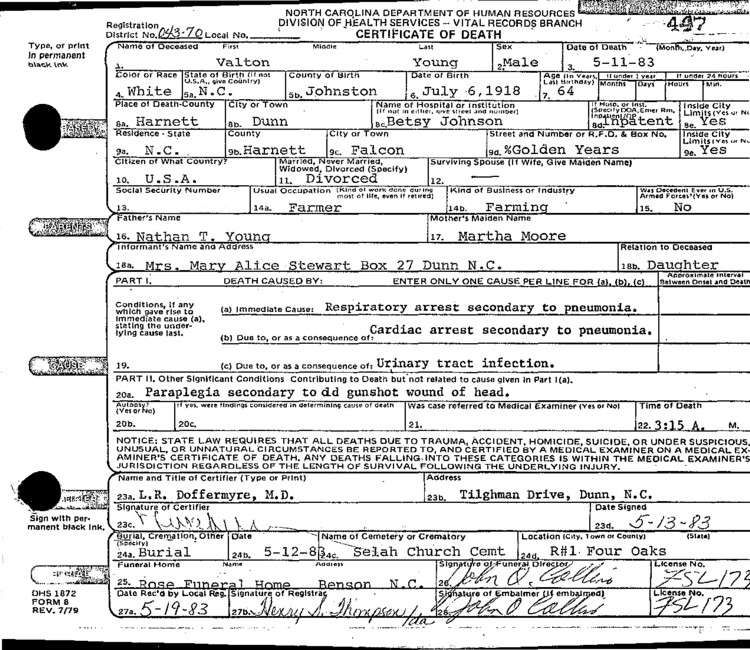 NORTH CAROLINA DEPARTMENT OF HUMAN RESOURCES
DIVISION OF HEALTH SERVICES – VITAL RECORDS BRANCH
CERTIFICATE OF DEATH
Registration
District No. 043-70 Local No.
497
Type, or print
in permanent
black ink.
Name of Deceased First Middle Last Sex Date of Death (Month, Day, Year)
1. Valton Young 2. Male 3. 5-11-83
Color or Race State of Birth (If not U.S.A., give Country) County of Birth Date of Birth Age (In Years, Last Birthday) If under 1 year If under 24 hours
Months Days Hours Min.
4. White 5a. N.C. 5b. Johnston 6. July 6,1918 7. 64
Place of Death-County City or Town Name of Hospital or Institution (If not in either, give street and number) If Hosp. or Inst. (Specify DOA, Emer Rm, Inpatient) Inside City Limits (Yes or No)
8a. Harnett 8b. Dunn 8c. Betsy Johnson 8d. Inpatent 8e. Yes
Residence - State County City or Town Street and Number or R.F.D. & Box No. Inside City Limits (Yes or No)
9a. N.C. 9b. Harnett 9c. Falcon 9d. %Golden Years 9e. Yes
Citizen of What Country? Married, Never Married, Widowed, Divorced (Specify) Surviving Spouse (If Wife, Give Maiden Name)
10. U.S.A. 11. Divorced 12. —
Social Security Number Usual Occupation (Kind of work done during most of life, even if retired) Kind of Business or Industry Was Decedent Ever in U.S. Armed Forces? (Yes or No)
13. 14a. Farmer 14b. Farming 15. No
PARENTS
Father's Name Mother's Maiden Name
16. Nathan T. Young 17. Martha Moore
Informant's Name and Address Relation to Deceased
18a. Mrs. Mary Alice Stewart Box 27 Dunn N.C. 18b. Daughter
PART I. DEATH CAUSED BY: ENTER ONLY ONE CAUSE PER LINE FOR (a), (b), (c) Approximate Interval Between Onset and Death
Conditions, if any
which gave rise to
immediate cause (a),
stating the under-
lying cause last.
(a) Immediate Cause: Respiratory arrest secondary to pneumonia.
Cardiac arrest secondary to pneumonia.
(b) Due to, or as a consequence of:
CAUSE
19. (c) Due to, or as a consequence of: Urinary tract infection.
PART II. Other Significant Conditions Contributing to Death but not related to cause given in Part I(a).
20a. Paraplegia secondary to old gunshot wound of head.
Autopsy? (Yes or No) If yes, were findings considered in determining cause of death Was case referred to Medical Examiner (Yes or No) Time of Death
20b. 20c. 21. 22. 3:15 A. M.
NOTICE: STATE LAW REQUIRES THAT ALL DEATHS DUE TO TRAUMA, ACCIDENT, HOMICIDE, SUICIDE, OR UNDER SUSPICIOUS,
UNUSUAL, OR UNNATURAL CIRCUMSTANCES BE REPORTED TO, AND CERTIFIED BY A MEDICAL EXAMINER ON A MEDICAL EX-
AMINER'S CERTIFICATE OF DEATH. ANY DEATHS FALLING INTO THESE CATEGORIES IS WITHIN THE MEDICAL EXAMINER'S
JURISDICTION REGARDLESS OF THE LENGTH OF SURVIVAL FOLLOWING THE UNDERLYING INJURY.
Name and Title of Certifier (Type or Print) Address
23a. L.R. Doffermyre, M.D. 23b. Tilghman Drive, Dunn, N.C.
Signature of Certifier Date Signed
Sign with per-
manent black ink.
23c. 23d. 5-13-83
Burial, Cremation, Other (Specify) Date Name of Cemetery or Crematory Location (City, Town or County) (State)
24a. Burial 24b. 5-12-83 24c. Selah Church Cemt 24d. R#1 Four Oaks
Funeral Home Name Address Signature of Funeral Director License No.
25. Rose Funeral Home Benson N.C. 26. John O. Collins FSL 173
DHS 1872
FORM 8
REV. 7/79
Date Rec'd by Local Reg. Signature of Registrar Signature of Embalmer (If embalmed) License No.
27a. 5-19-83 27b. Henry S. Thompson/da 28. John O Collins FSL 173